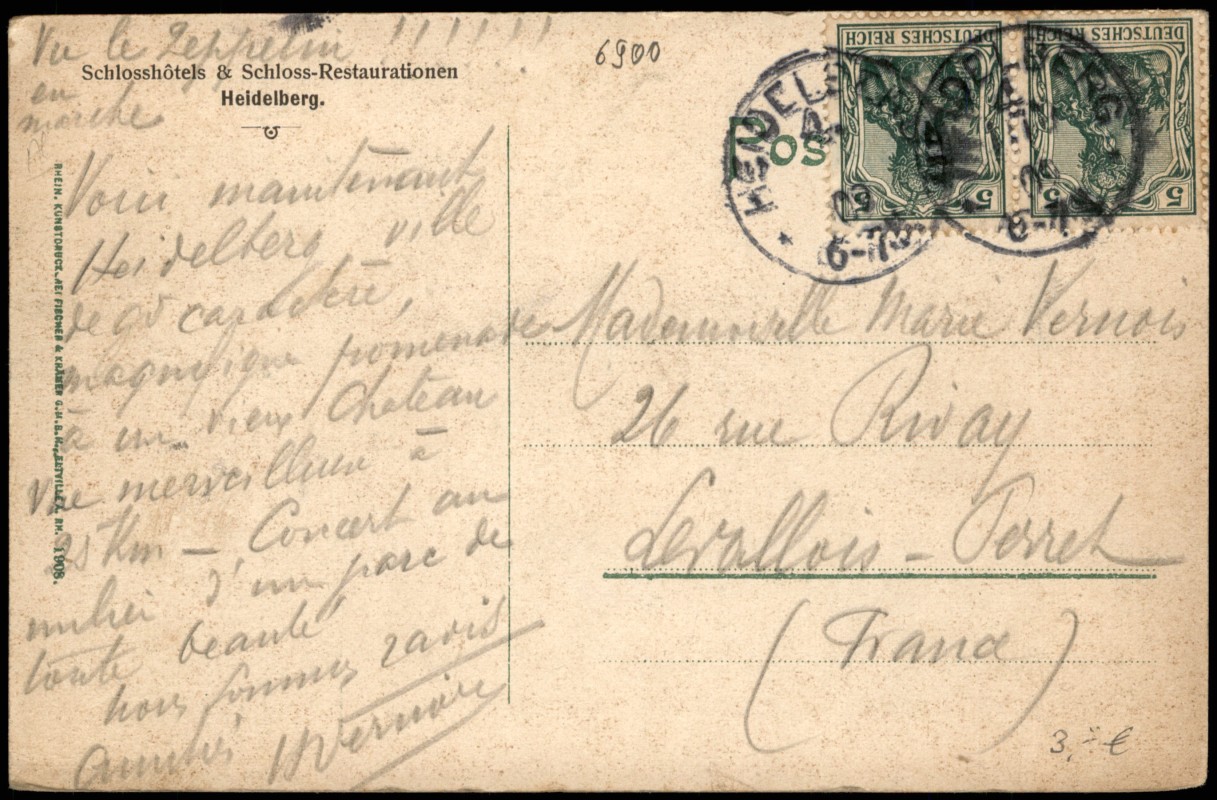 Vu le Zeppelin !!!!!!!
en
marche
6900
Schlosshôtels & Schloss-Restaurationen
Heidelberg.
Voici maintenant
Heidelberg ville
de gd caractère,
magnifique promenade
à un vieux Château
Vue merveilleuse à
25 Km – Concert au
milieu d'un parc de
toute beauté
nous sommes ravis
Amitiés HVernois
RHEIN. KUNSTDRUCK. BEI FISCHER & KRÄMER G.M.B.H., ELTVILLE A. RH. 1908.
Pos
DEUTSCHES REICH
5 5
DEUTSCHES REICH
5 5
HEIDELBERG
09
6-7
HEIDELBERG
09
6-7
Mademoiselle Marie Vernois
26 rue Rivay
Levallois-Perret
(France)
3,- €